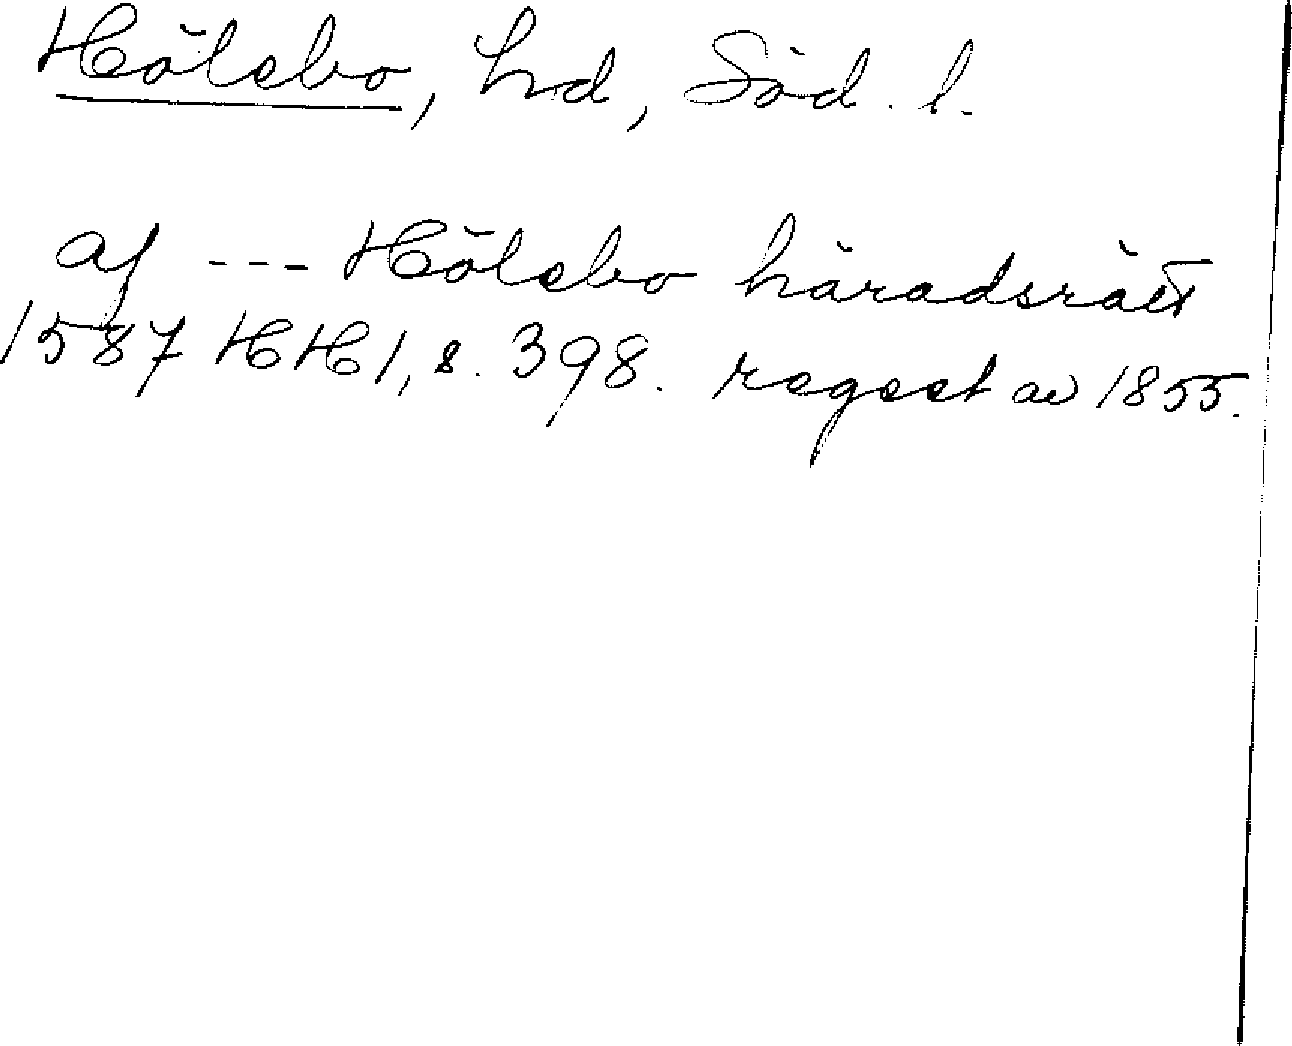 Hölebo, hd, Söd. l.
af --- Hölebo häradsrätt
1587 HH 1, s. 398. regest av 1855.